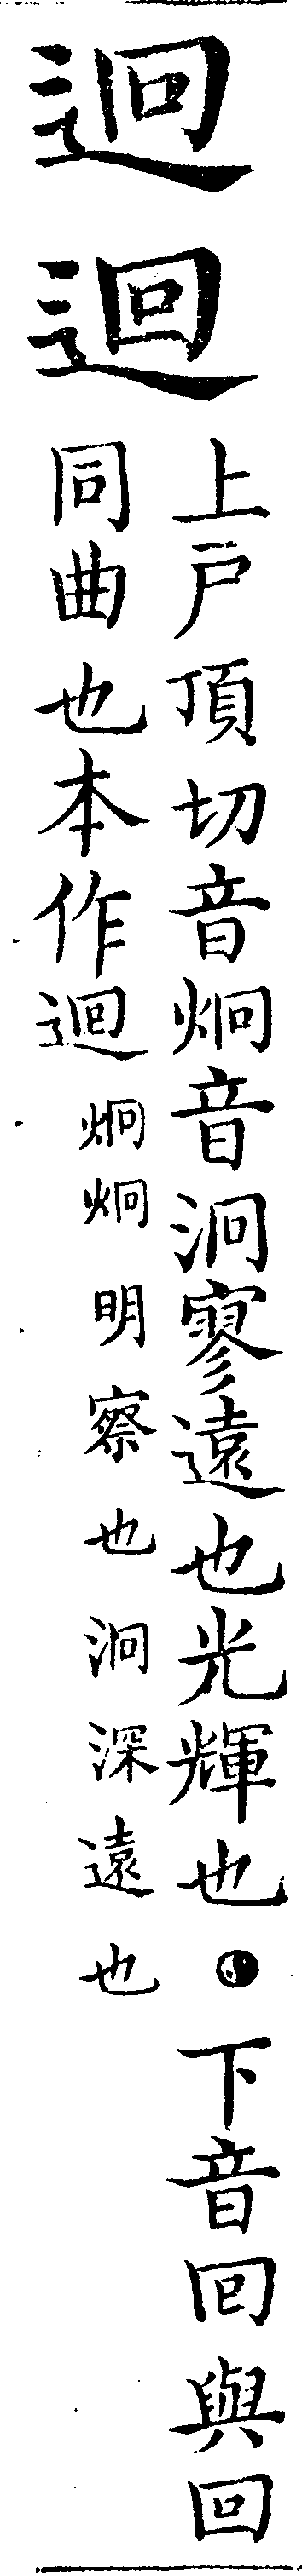 迥
迴
上戶頂切音炯音泂寥遠也光輝也 下音回與回
同曲也本作迴 炯炯明察也泂深遠也